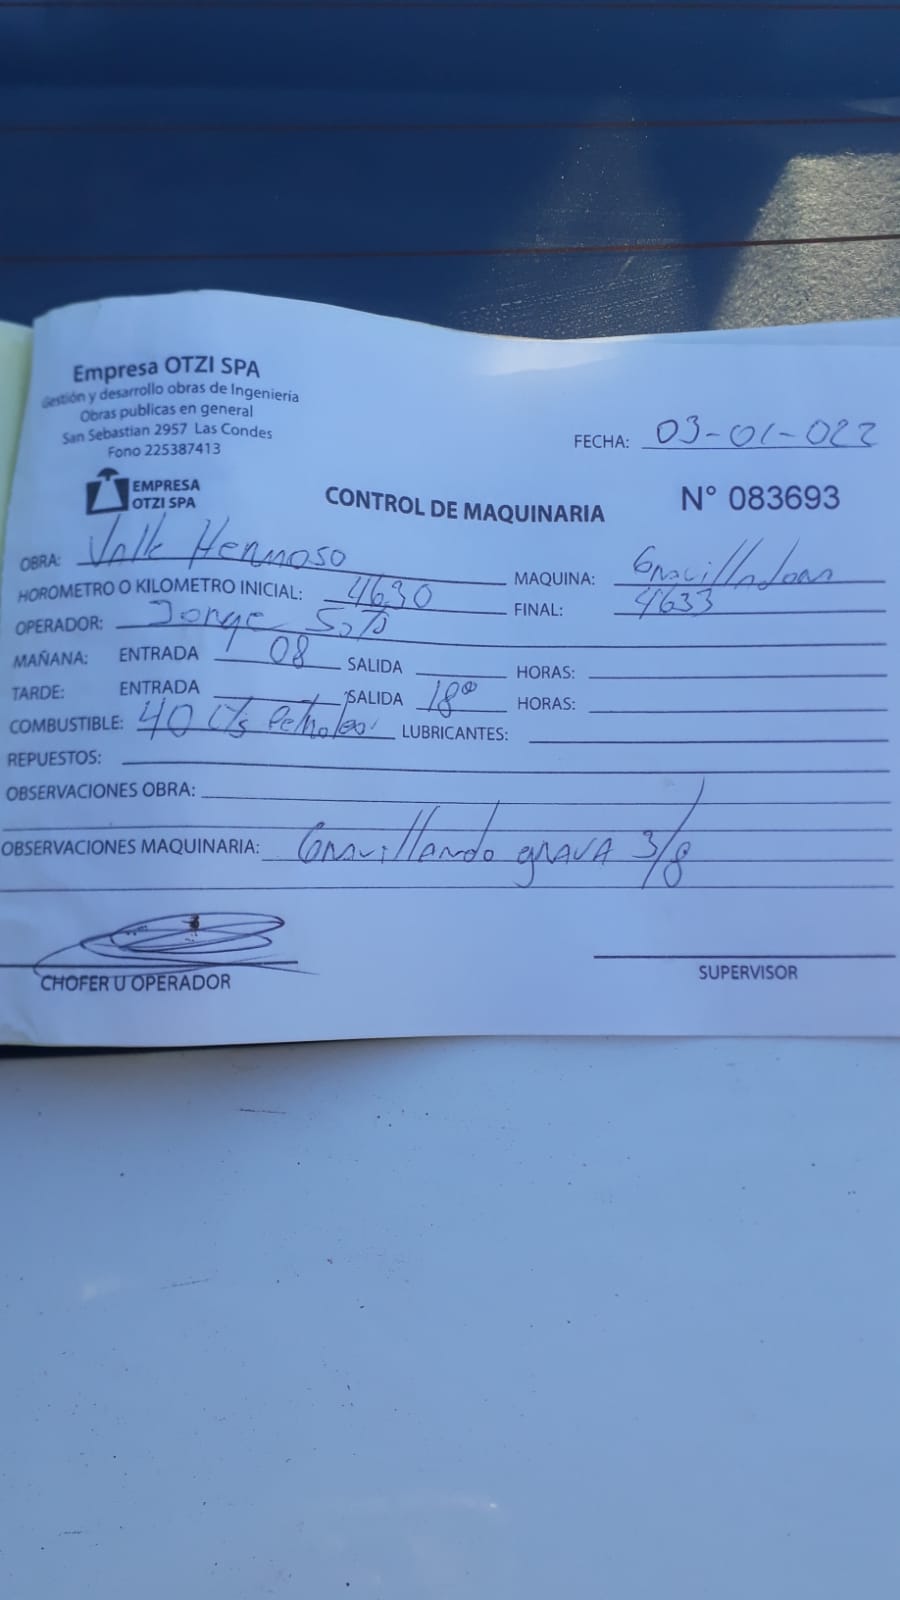 Empresa OTZI SPA
Gestión y desarrollo obras de Ingenieria
Obras publicas en general
San Sebastian 2957 Las Condes
Fono 225387413
FECHA: 03-01-022
EMPRESA
OTZI SPA
CONTROL DE MAQUINARIA
N° 083693
OBRA: Valle Hermoso
MAQUINA: Gravilladora
HOROMETRO O KILOMETRO INICIAL: 4630
FINAL: 4633
OPERADOR: Jorge Soto
MAÑANA: ENTRADA 08 SALIDA HORAS:
TARDE: ENTRADA SALIDA 18⁰⁰ HORAS:
COMBUSTIBLE: 40 Lts Petroleo LUBRICANTES:
REPUESTOS:
OBSERVACIONES OBRA:
OBSERVACIONES MAQUINARIA: Gravillando grava 3/8
CHOFER U OPERADOR
SUPERVISOR